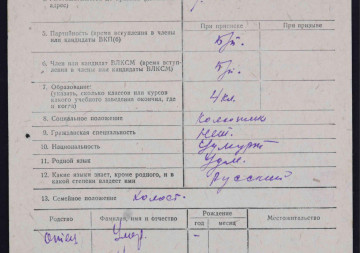 адрес)
При приписке При призыве
5. Партийность (время вступления в члены
или кандидаты ВКП(б) б/п.
6. Член или кандидат ВЛКСМ (время вступ-
ления в члены или кандидаты ВЛКСМ) б/п.
7. Образование:
(указать, сколько классов или курсов
какого учебного заведения окончил, где
и когда) 4 кл.
8. Социальное положение Колхозник
9. Гражданская специальность Нет.
10. Национальность Удмурт
11. Родной язык Удм.
12. Какие языки знает, кроме родного, и в
какой степени владеет ими Русский
13. Семейное положение Холост.
Родство Фамилия, имя и отчество Рождение Местожительство
год месяц
отец Умер. -